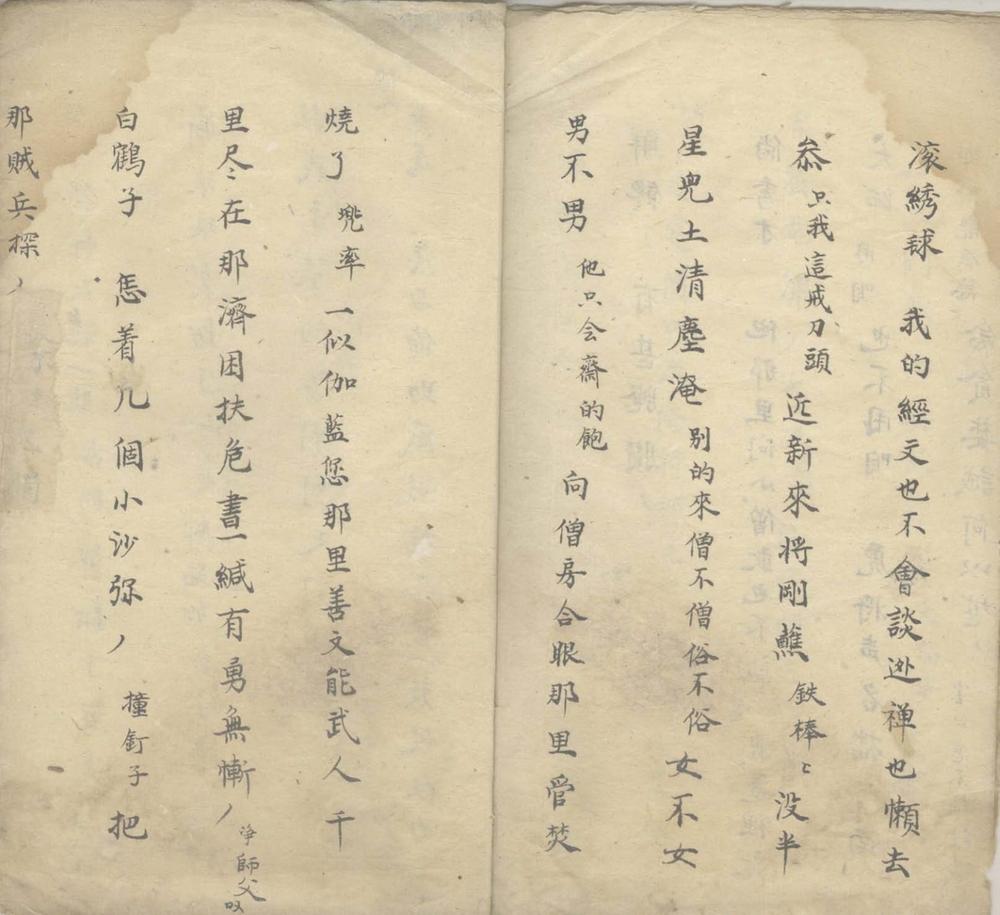 滚綉球　我的經文也不會談迯禅也懶去
叅只我這戒刀頭近新來将剛蘸鉄棒〻没半
星兜土清塵淹别的來僧不僧俗不俗女不女
男不男他只会齋的飽向僧房合眼那里管焚
燒了兠率一似伽藍您那里善文能武人千
里尽在那濟困扶危書一緘有勇無慚ノ净師父収
白鶴子　怎着几個小沙弥ノ撞釘子把
那贼兵探ノ